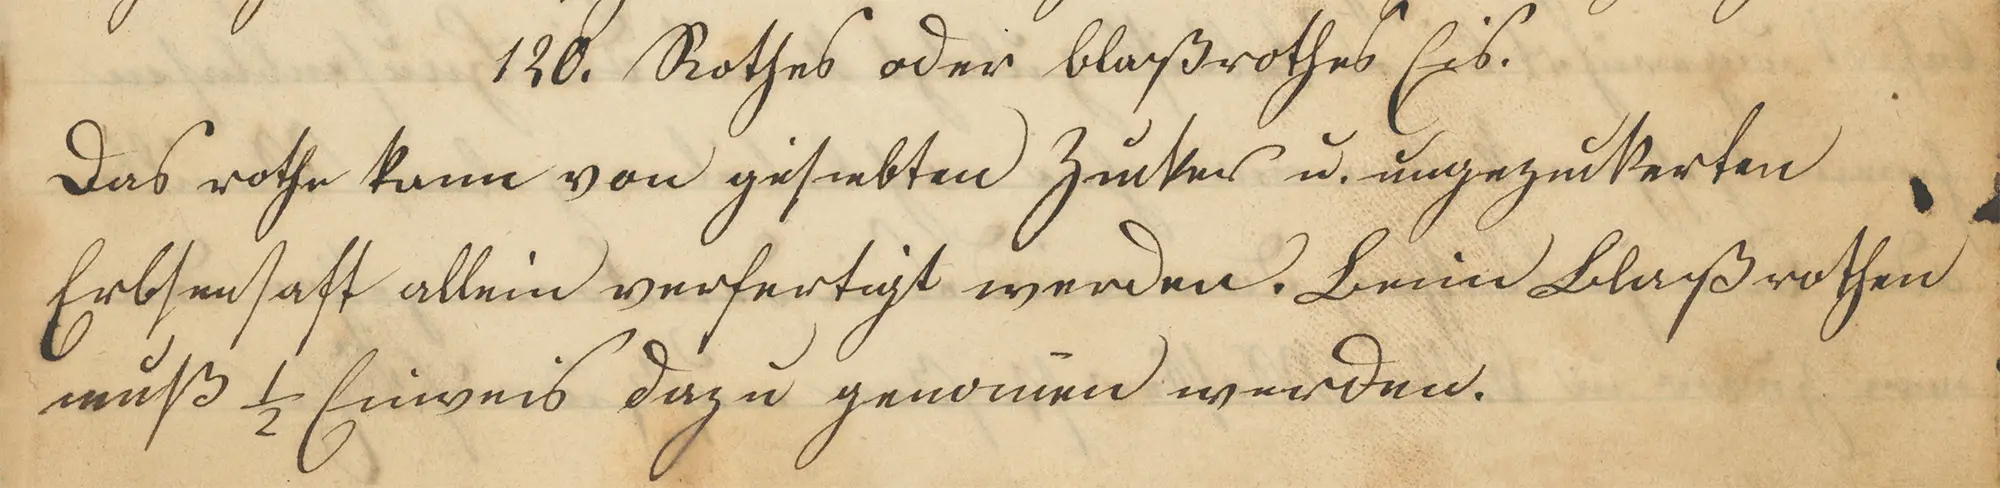 120. Rothes oder blaßrothes Eis.
Das rothe kann von gesiebten Zucker u. ungezuckerten
Erbsensaft allein verfertigt werden. Beim Blaßrothen
muß ½ Einweis dazu genom̄en werden.